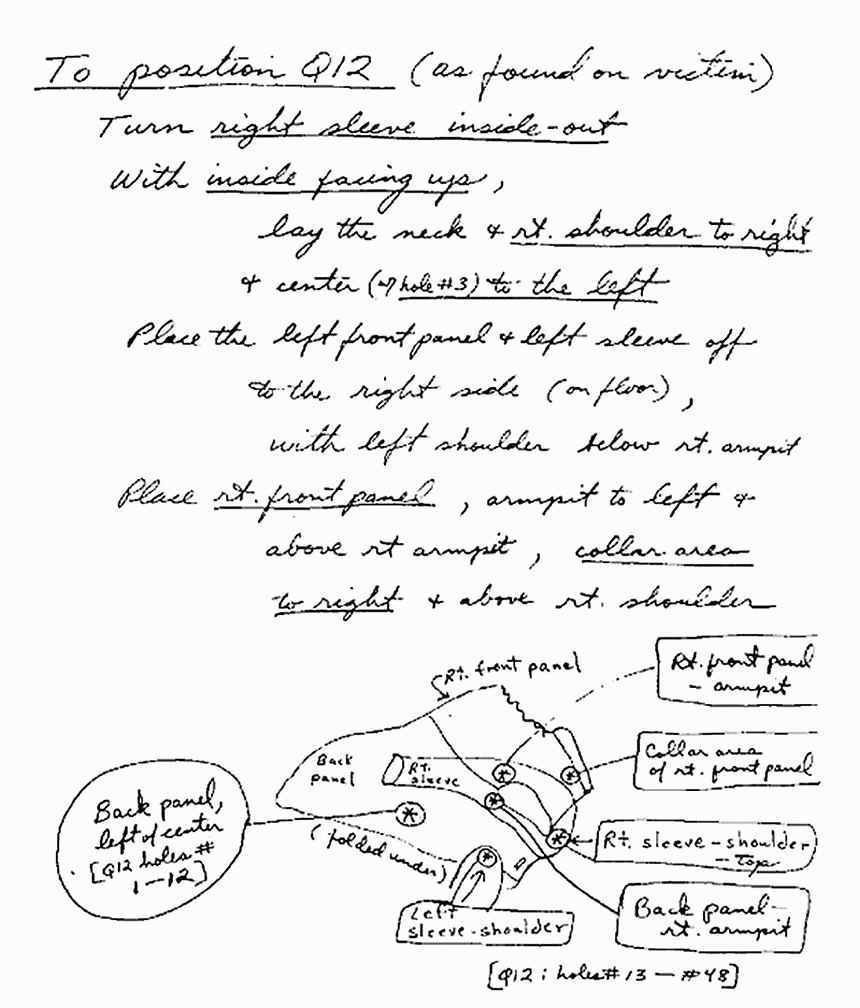 To position Q12 (as found on victim)
Turn right sleeve inside-out
With inside facing up,
lay the neck & rt. shoulder to right
& center (~7 hole #3) to the left
Place the left front panel & left sleeve off
to the right side (on floor),
with left shoulder below rt. armpit
Place rt. front panel, armpit to left &
above rt armpit, collar area
to right & above rt. shoulder
Rt. front panel
Rt. front panel
- armpit
Collar area
of rt. front panel
Back
panel
Rt.
sleeve
Back panel,
left of center
[Q12 holes #
1-12]
(folded under)
Rt. sleeve-shoulder
- top
Left
sleeve-shoulder
Back panel-
rt. armpit
[Q12: holes #13 - #48]